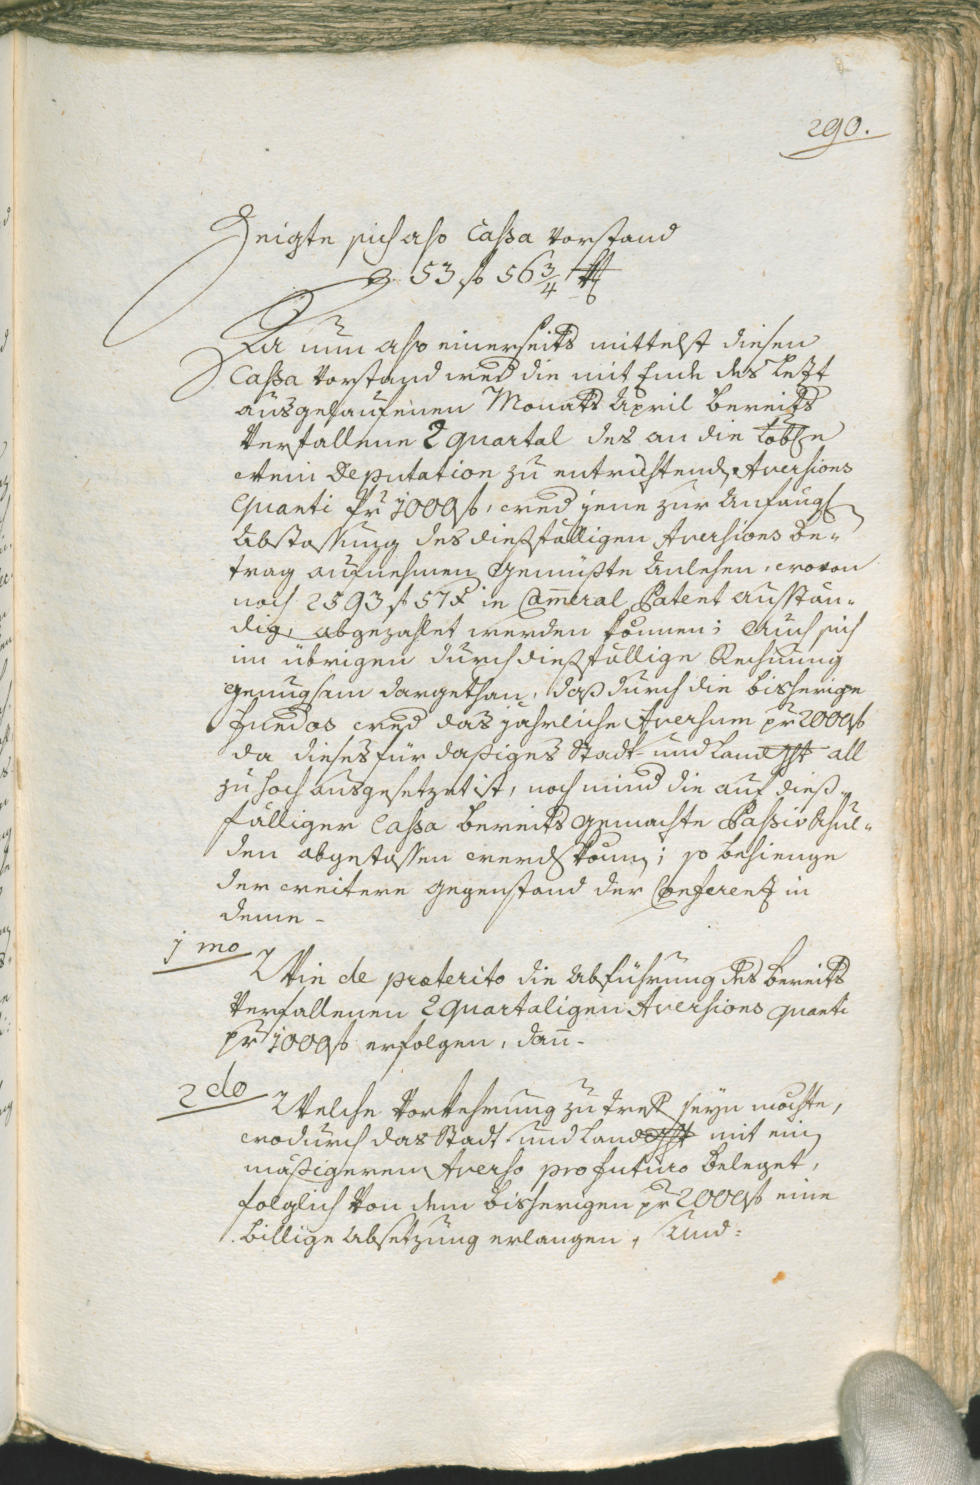 290.
Zeigte sich also Cassa Vorstand
53 f 56 3/4 xr
Da nun also einerseits mittelst diesen
Cassa Vorstand weed die mit Ende des letzt
ausgelaufenen Monats April bereits
verfallene 2 quartal des an die Löble
Deputation zu entrichtende Aversions
Quanti pr 1000 f, weed jene zur Anfangs
Abstossung des diesfälligen Aversions Be¬
trag aufnehmen gemüßte Anlehen, wovon
noch 2593 f 57 x in Cameral Patent ausstän¬
dig, abgezahlet werden können; Auch sich
im übrigen durch diesfällige Rechnung
genugsam dargethan, daß durch die bisherige
Fundos weed das jährliche Aversum pr 2000 f
da dieses für dasiges Stadt- und Landgst all
zu hoch ausgesetzet ist, noch mind die auf dies¬
fälliger Cassa bereits gemachte Passiv Schul¬
den abgestossen werden können; so bestienge
der weitere Gegenstand der Conferenz in
deme -
1mo
Wie de præterito die Abführung des bereits
verfallenen 2 quartaligen Aversions quanti
pr 1000 f erfolgen, dann -
2do
Welche Vorkehrung zu treffen seyn möchte,
wodurch das Stadt- und Landgst mit ein
mäßigerem Averso pro futuro beleget,
folglich von dem bisherigen pr 2000 f eine
billige Absetzung erlangen, und: